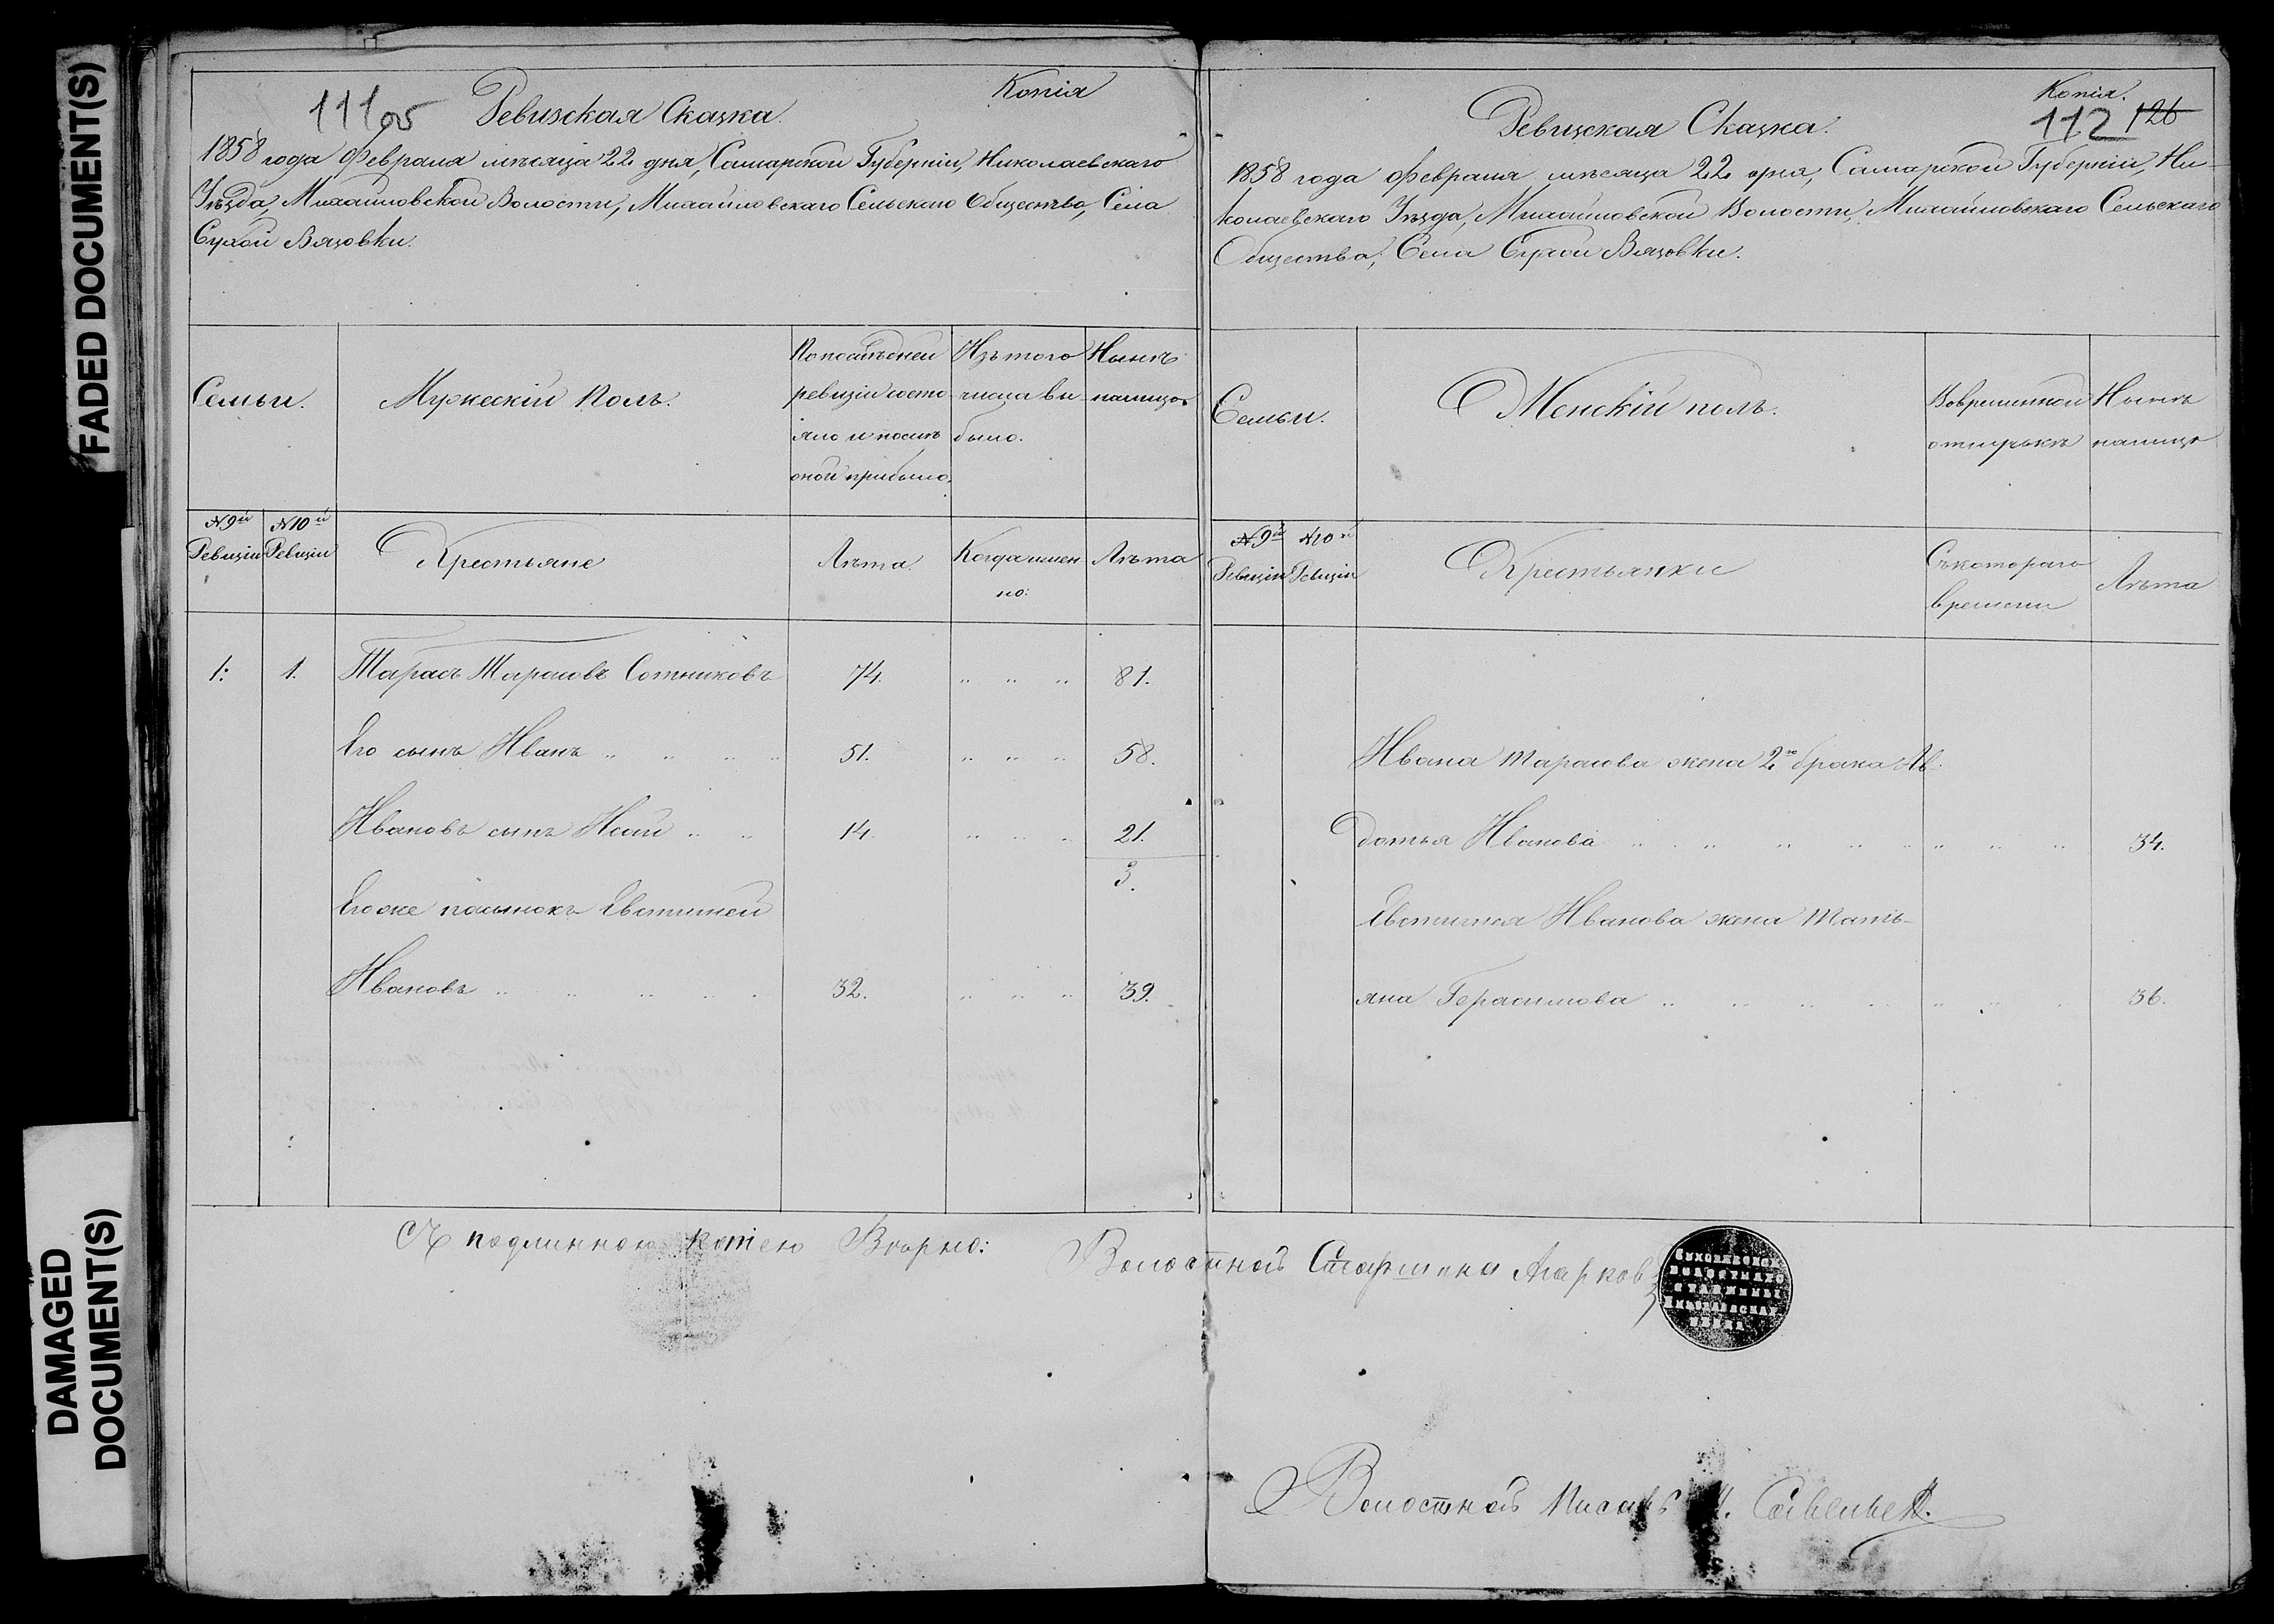 FADED DOCUMENT(S)
DAMAGED
DOCUMENT(S)
111об
Копія
Ревизская Сказка.
1858 года Февраля мѣсяца 22 дня, Самарской Губерніи, Николаевскаго
Уѣзда, Михайловской Волости, Михайловскаго Сельскаго Общества, Села
Сухой Вязовки.
Семьи.
Мужескій полъ.
По послѣдней
ревизіи состо
яло и послѣ
оной прибыло.
Изъ того
числа вы
было.
Нынѣ
налицо.
N 9й
Ревизіи
N 10й
Ревизіи
Крестьяне
Лѣта
Когда имен
но:
Лѣта
1: 1. Тарасъ Тарасовъ Сотниковъ 74. " " " 81.
Его сынъ Иванъ " " " " 51. " " " 58.
Ивановъ сынъ Исай " " 14. " " " 21.
3.
Его же пасынокъ Евстигней
Ивановъ " " " " " 32. " " " 39.
Съ подлинною копіею Вѣрно:
Копія.
112 126
Ревизская Сказка.
1858 года февраля мѣсяца 22 дня, Самарской Губерніи, Ни-
колаевскаго Уѣзда, Михайловской Волости, Михайловскаго Сельскаго
Общества, Села Сухой Вязовки.
Семьи.
Женскій полъ.
Во временной
отлучкѣ
Нынѣ
налицо
N 9й
Ревизіи
N 10й
Ревизіи
Крестьянки
Съ котораго
времени
Лѣта
Ивана Тарасова жена 2го брака Ав-
дотья Иванова " " " " " " " " 34.
Евстигнея Иванова жена Тать-
яна Герасимова " " " " " " " 36.
Волостной Старшина Агарков
Волостной Писарь